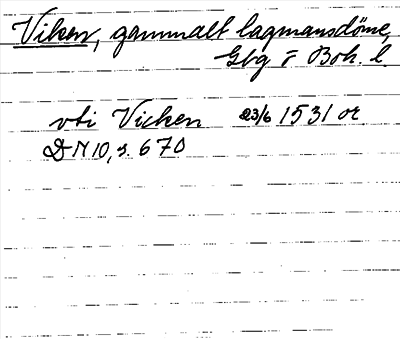 Viken, gammalt lagmansdöme,
Gbg o Boh. l.
vti Vicken 23/6 1531 or
DN 10, s. 670